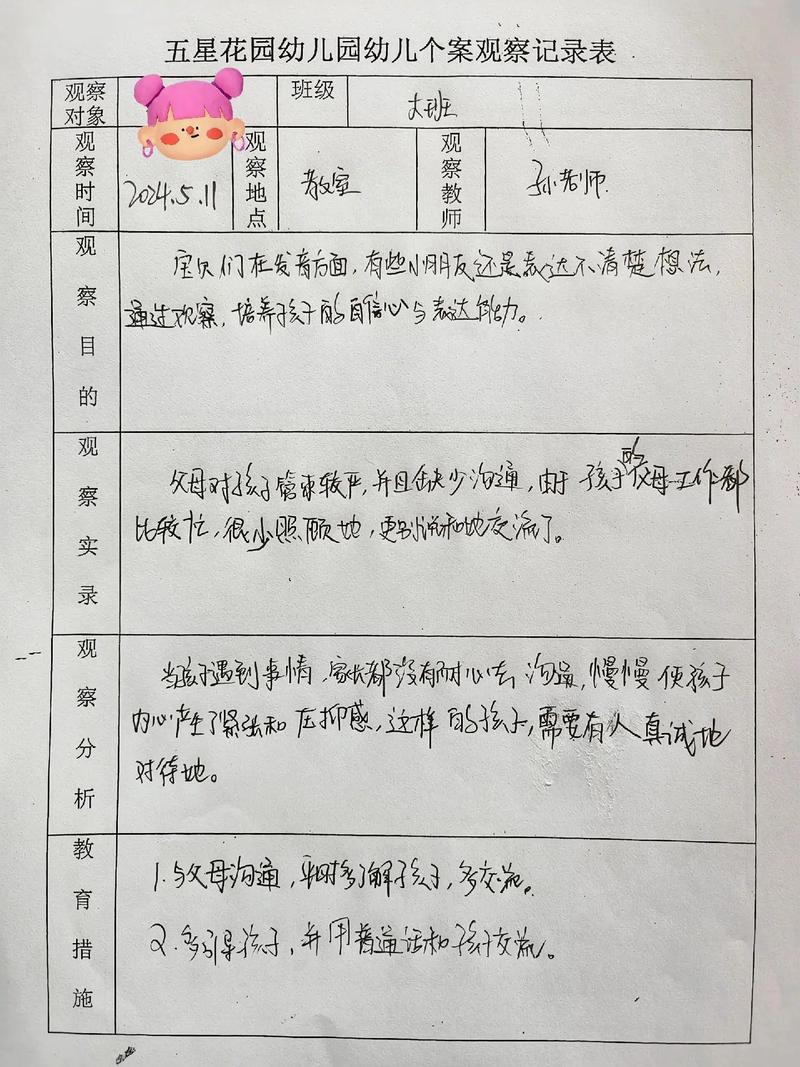 五星花园幼儿园幼儿个案观察记录表
观察对象 班级 大班
观察时间 2024.5.11 观察地点 教室 观察教师 孙老师.
观察目的
宝贝们在发音方面，有些小朋友还是表达不清楚想法，
通过观察，培养孩子的自信心与表达能力。
观察实录
父母对孩子管束较严，并且缺少沟通，由于孩子的父母工作都
比较忙，很少照顾她，更别说和她交流了。
观察分析
当孩子遇到事情，家长都没有耐心去沟通，慢慢使孩子
内心产生了紧张和压抑感，这样的孩子，需要有人真诚地
对待她。
教育措施
1.与父母沟通，平时多了解孩子，多交流。
2.多引导孩子，并用普通话和孩子交流。